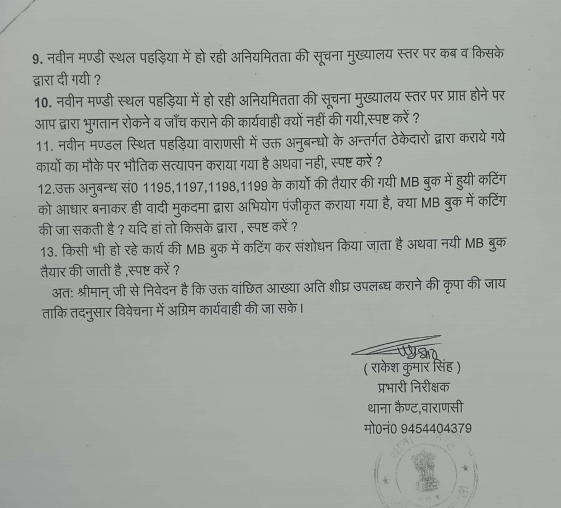 9. नवीन मण्डी स्थल पहड़िया में हो रही अनियमितता की सूचना मुख्यालय स्तर पर कब व किसके
द्वारा दी गयी ?
10. नवीन मण्डी स्थल पहड़िया में हो रही अनियमितता की सूचना मुख्यालय स्तर पर प्राप्त होने पर
आप द्वारा भुगतान रोकने व जाँच कराने की कार्यवाही क्यों नहीं की गयी,स्पष्ट करें ?
11. नवीन मण्डल स्थित पहड़िया वाराणसी में उक्त अनुबन्धो के अन्तर्गत ठेकेदारो द्वारा कराये गये
कार्यो का मौके पर भौतिक सत्यापन कराया गया है अथवा नही, स्पष्ट करें ?
12.उक्त अनुबन्ध सं0 1195,1197,1198,1199 के कार्यो की तैयार की गयी MB बुक में हुयी कटिंग
को आधार बनाकर ही वादी मुकदमा द्वारा अभियोग पंजीकृत कराया गया है, क्या MB बुक में कटिंग
की जा सकती है ? यदि हां तो किसके द्वारा , स्पष्ट करें ?
13. किसी भी हो रहे कार्य की MB बुक में कटिंग कर संशोधन किया जाता है अथवा नयी MB बुक
तैयार की जाती है ,स्पष्ट करें ?
अत: श्रीमान् जी से निवेदन है कि उक्त वांछित आख्या अति शीघ्र उपलब्ध कराने की कृपा की जाय
ताकि तद्नुसार विवेचना में अग्रिम कार्यवाही की जा सके।
( राकेश कुमार सिंह )
प्रभारी निरीक्षक
थाना कैण्ट,वाराणसी
मो0नं0 9454404379